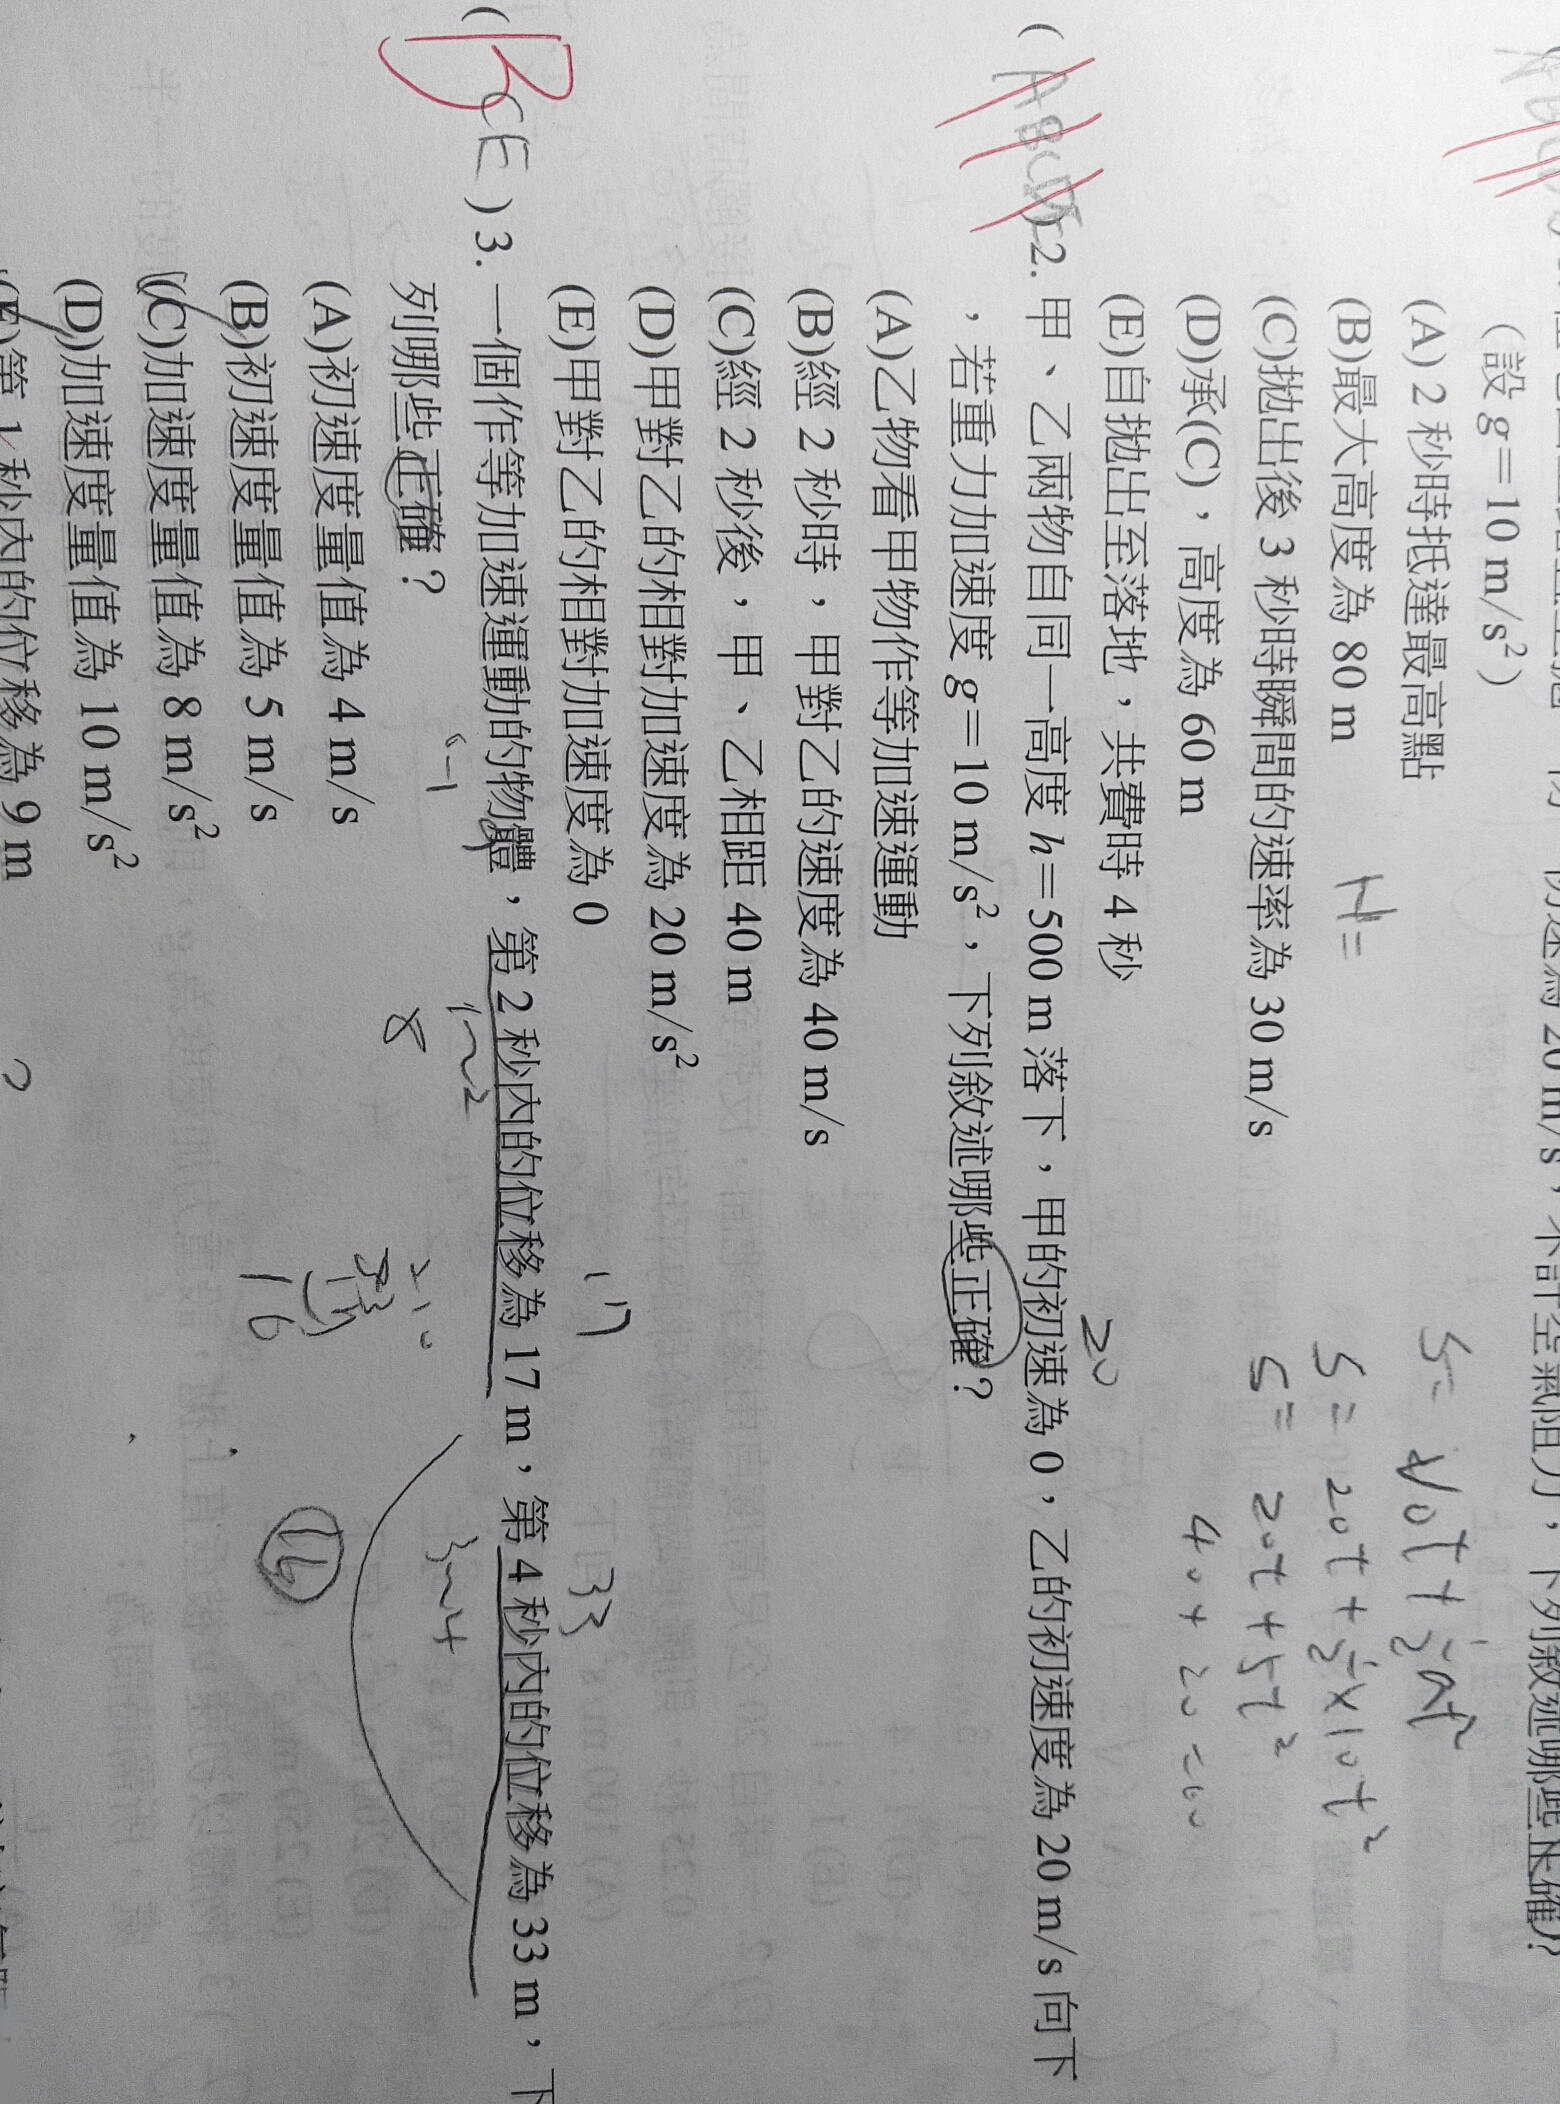 (設 g＝10 m/s²)
(A) 2 秒時抵達最高點
(B)最大高度為 80 m
H=
(C)拋出後 3 秒時瞬間的速率為 30 m/s
(D)承(C)，高度為 60 m
(E)自拋出至落地，共費時 4 秒
S= V0t+½at²
S= 20t+½×10t²
S= 20t+5t²
40+20=60
20
(ABCDE)2. 甲、乙兩物自同一高度 h＝500 m 落下，甲的初速為 0，乙的初速度為 20 m/s 向下
，若重力加速度 g＝10 m/s²，下列敘述哪些正確？
(A)乙物看甲物作等加速運動
(B)經 2 秒時，甲對乙的速度為 40 m/s
(C)經 2 秒後，甲、乙相距 40 m
(D)甲對乙的相對加速度為 20 m/s²
(E)甲對乙的相對加速度為 0
17
33
(BCE)3. 一個作等加速運動的物體，第 2 秒內的位移為 17 m，第 4 秒內的位移為 33 m，下
列哪些正確？
0~1
1~2
3~4
8
(A)初速度量值為 4 m/s
(B)初速度量值為 5 m/s
16
16
(C)加速度量值為 8 m/s²
(D)加速度量值為 10 m/s²
(E)第 1 秒內的位移為 9 m
?